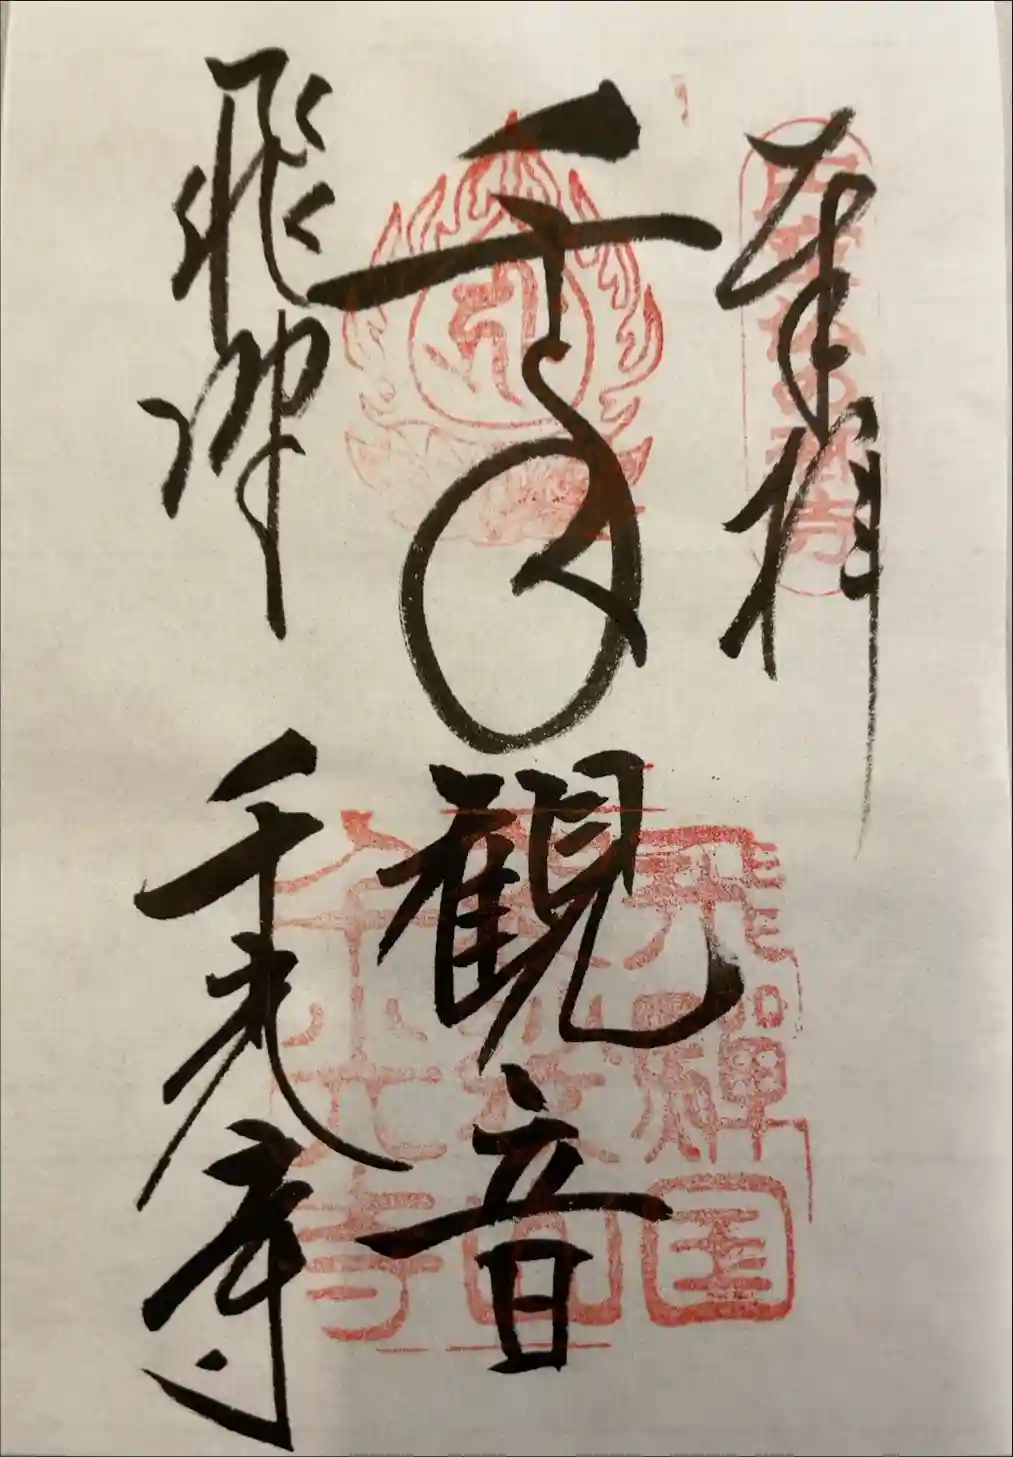 奉拝
千手観音
飛騨 千光寺
飛騨国
袈裟山
千光寺